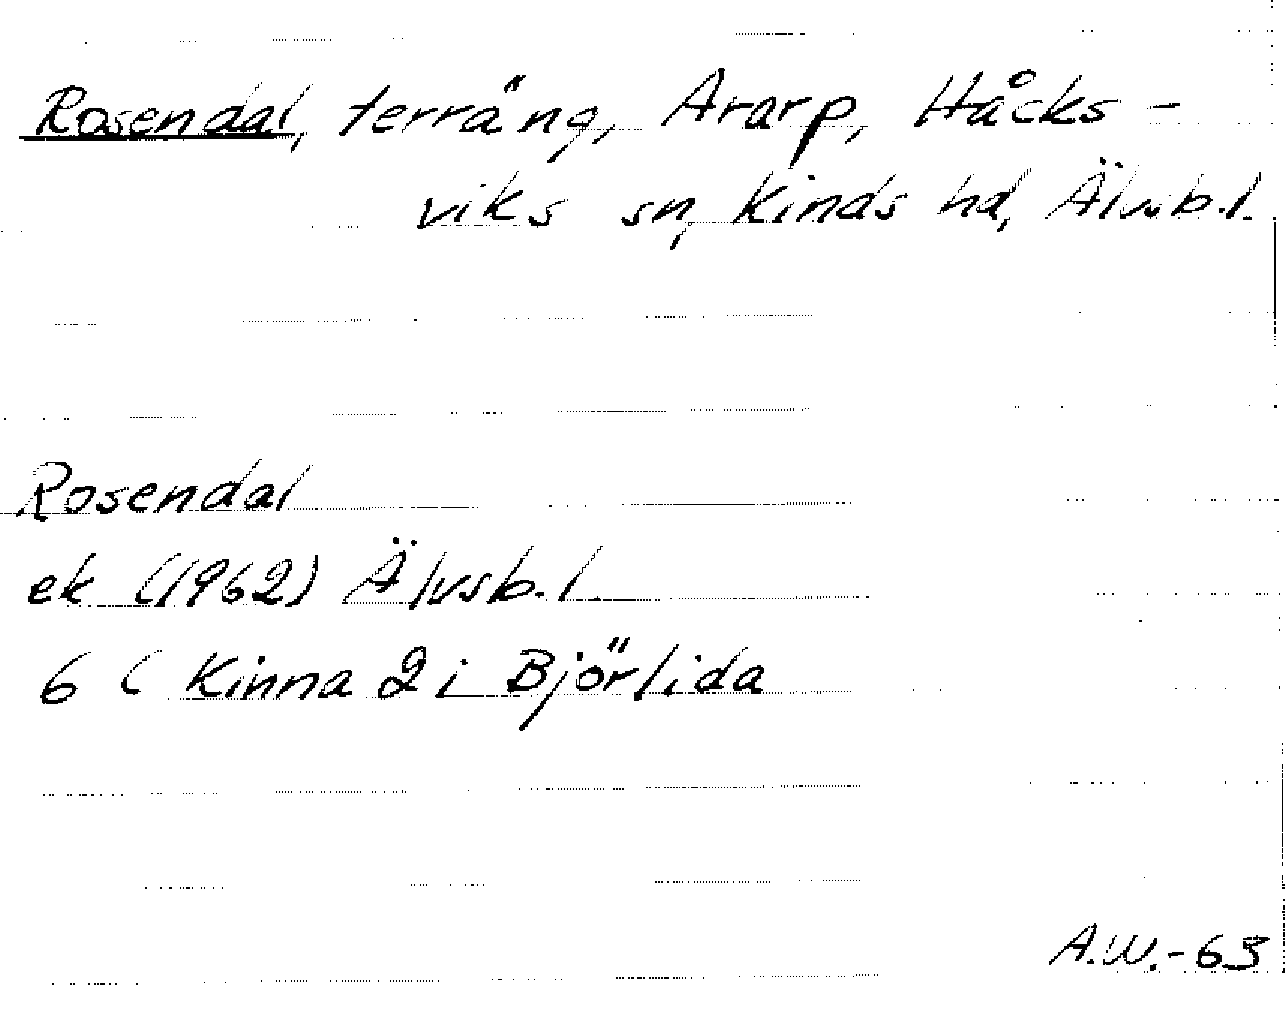 Rosendal, terräng, Ararp, Håcks-
viks sn, Kinds hd, Älvsb.l.
Rosendal
ek (1962) Älvsb.l
6 C Kinna 2 i Björlida
A.W.-63